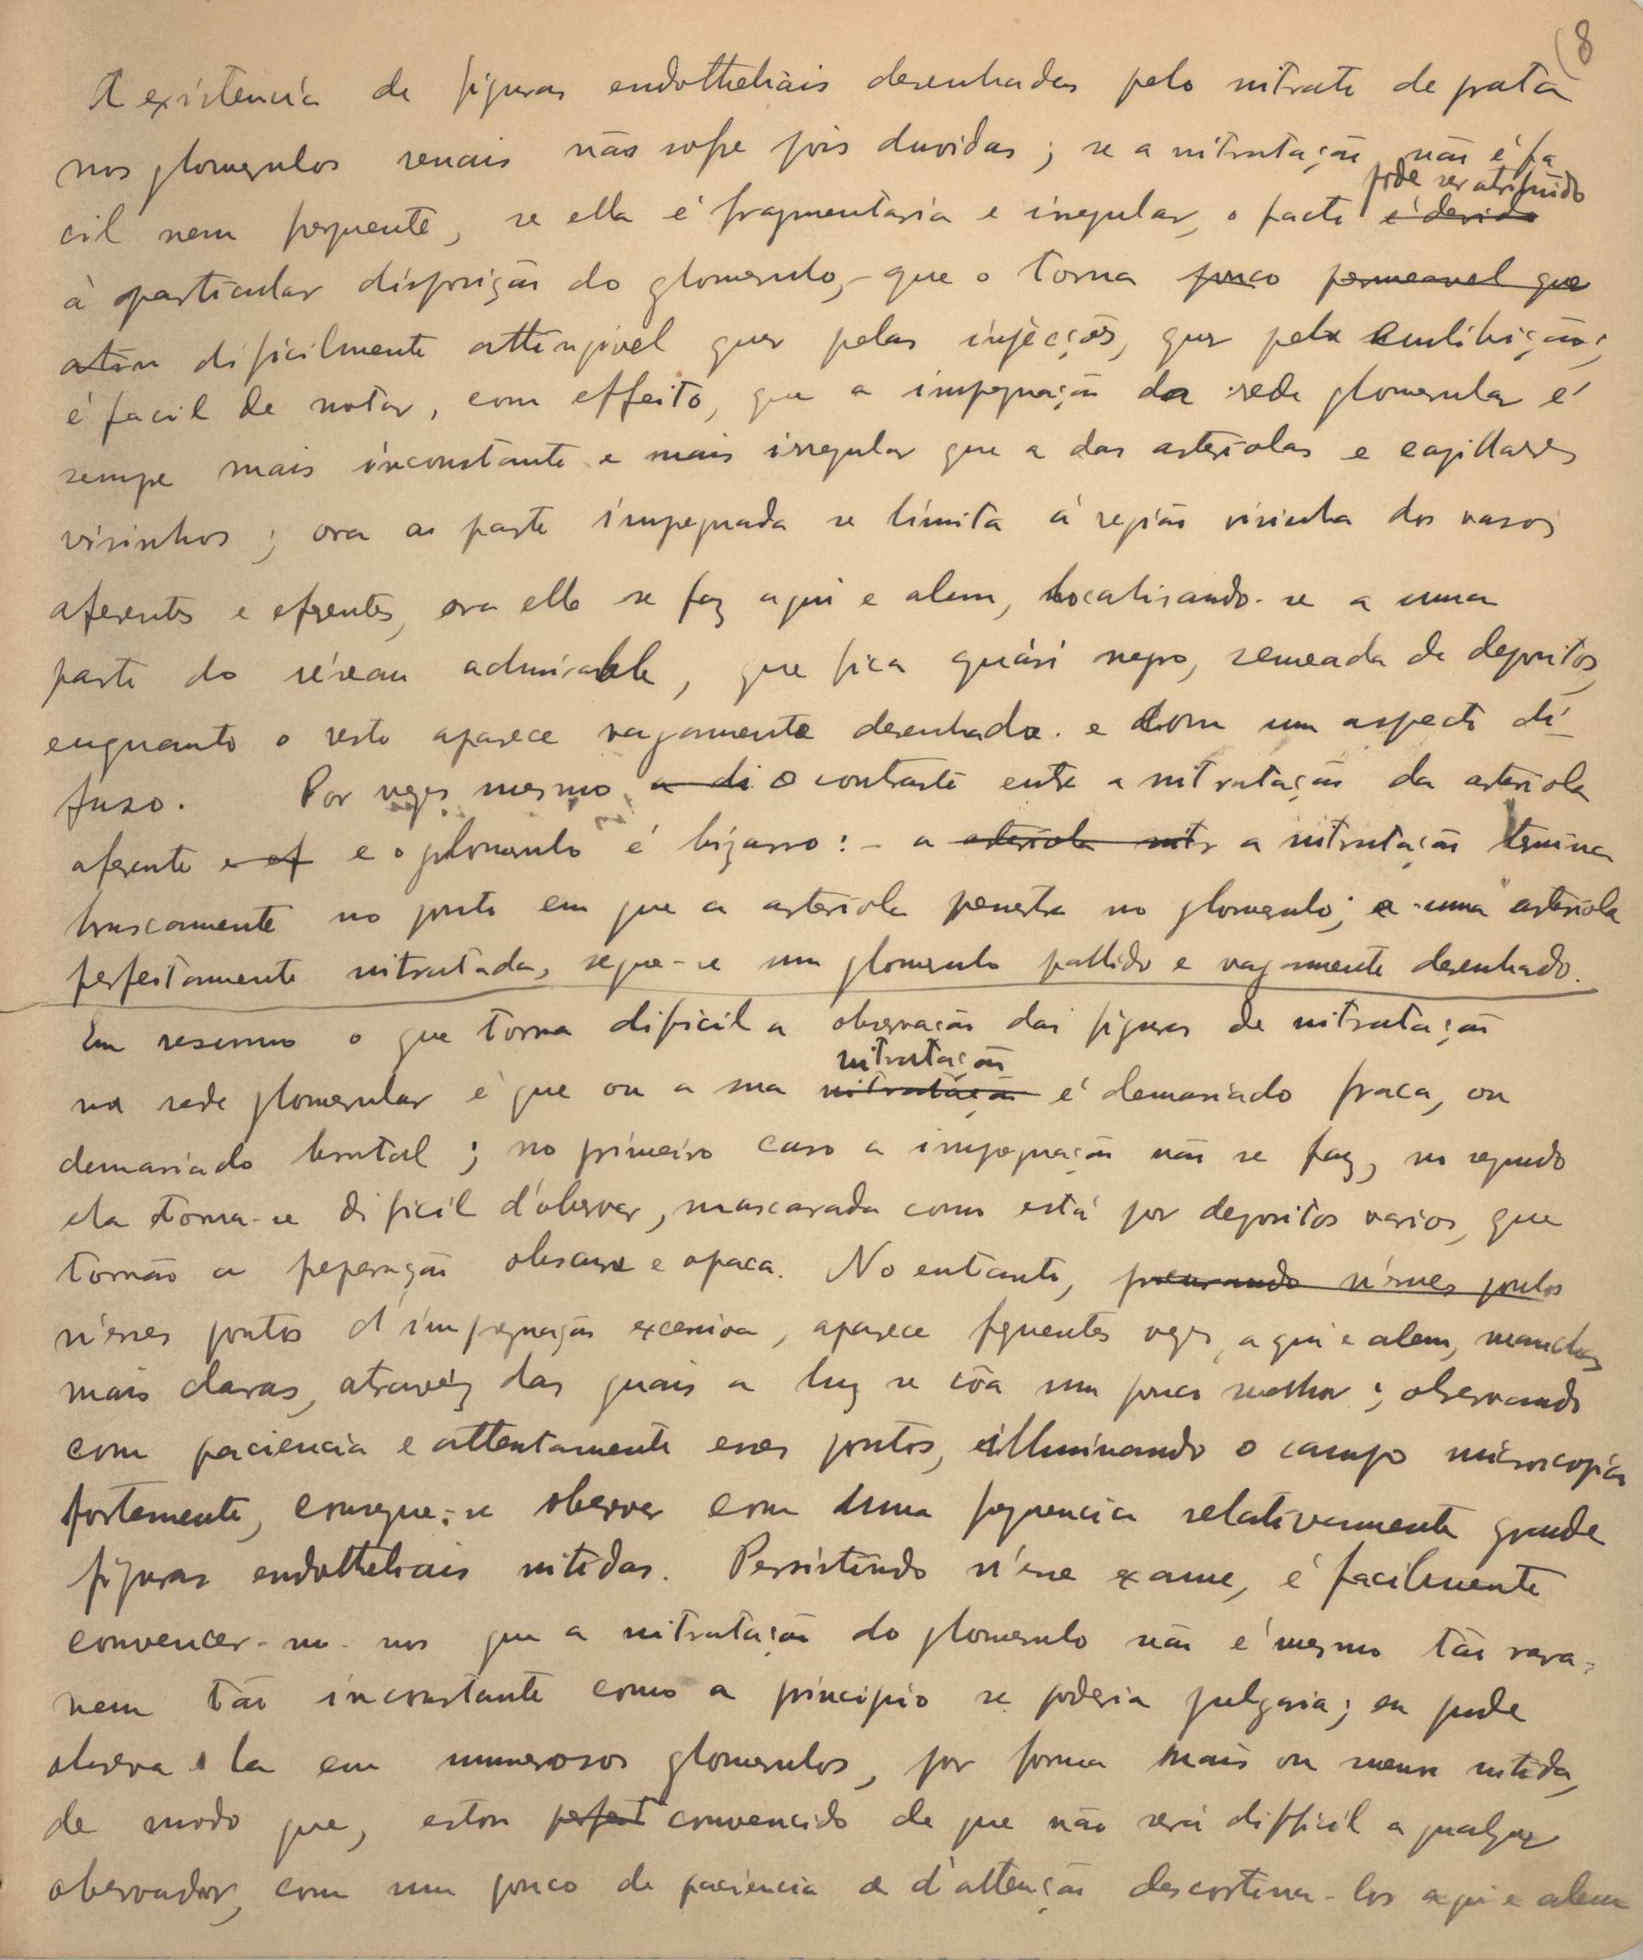 (8
A existencia de figuras endotheliais desenhadas pelo nitrato de prata
nos glomerulos renais não sofre pois duvidas; se a nitratação não é fa
pode ser atribuido
cil nem frequente, se ella é fragmentaria e irregular, o facto é devido
à particular disposição do glomerulo, - que o torna pouco permeavel que
atin dificilmente attingivel quer pelas injecções, quer pela embibição;
é facil de notar, com effeito, que a impregnação da rede glomerular é
sempre mais inconstante e mais irregular que a das arteriolas e capillares
visinhos; ora a parte impregnada se limita á região visinha dos vasos
aferentes e eferentes, ora ella se faz aqui e alem, localisando-se a uma
parte do réseau admirable, que fica quási negro, semeada de depositos,
enquanto o resto aparece vagamente desenhado e com um aspecto di-
fuso. Por vezes mesmo a di o contraste entre a nitratação da arteriola
aferente e ef e o glomerulo é bizarro: - a arteriola nitr a nitratação termina
bruscamente no ponto em que a arteriola penetra no glomerulo; a uma arteriola
perfeitamente nitratada, segue-se um glomerulo pallido e vagamente desenhado.
Em resumo o que torna dificil a observação das figuras de nitratação
nitratação
na rede glomerular é que ou a sua nitratação é demasiado fraca, ou
demasiado brutal; no primeiro caso a impregnação não se faz, no segundo
ela torna-se dificil d'observar, mascarada como está por depositos varios, que
tornão a preparação obscura e opaca. No entanto, procurando n'esses pontos
n'esses pontos d'impregnação excessiva, aparece frequentes vezes, aqui e alem, manchas
mais claras, atravéz das quais a luz se côa um pouco melhor; observando
com paciencia e attentamente esses pontos, illuminando o campo microscopico
fortemente, consegue-se observar com uma frequencia relativamente grande
figuras endotheliais nitidas. Persistindo n'esse exame, é facilmente
convencer-mo-nos que a nitratação do glomerulo não é mesmo tão rara,
nem tão inconstante como a principio se poderia julgaria; eu pude
observa-la em numerosos glomerulos, por forma mais ou menos nitida,
de modo que, estou perfeit convencido de que não será difficil a qualquer
observador, com um pouco de paciencia e d'attenção descortina-los aqui e alem